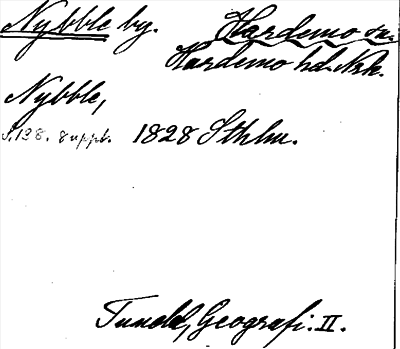 Nybble by. Hardemo sn.
Hardemo hd. Nrk.
Nybble,
S. 138. suppl. 1828 Sthlm.
Tuneld, Geografi. II.